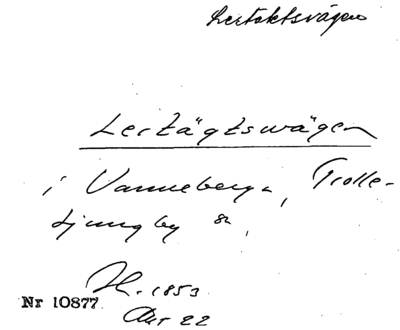 Lertaktsvägen
Lertägtswägen
i Vanneberga, Trolle-
Ljungby sn,
H. 1853
Akt 22
Nr 10877